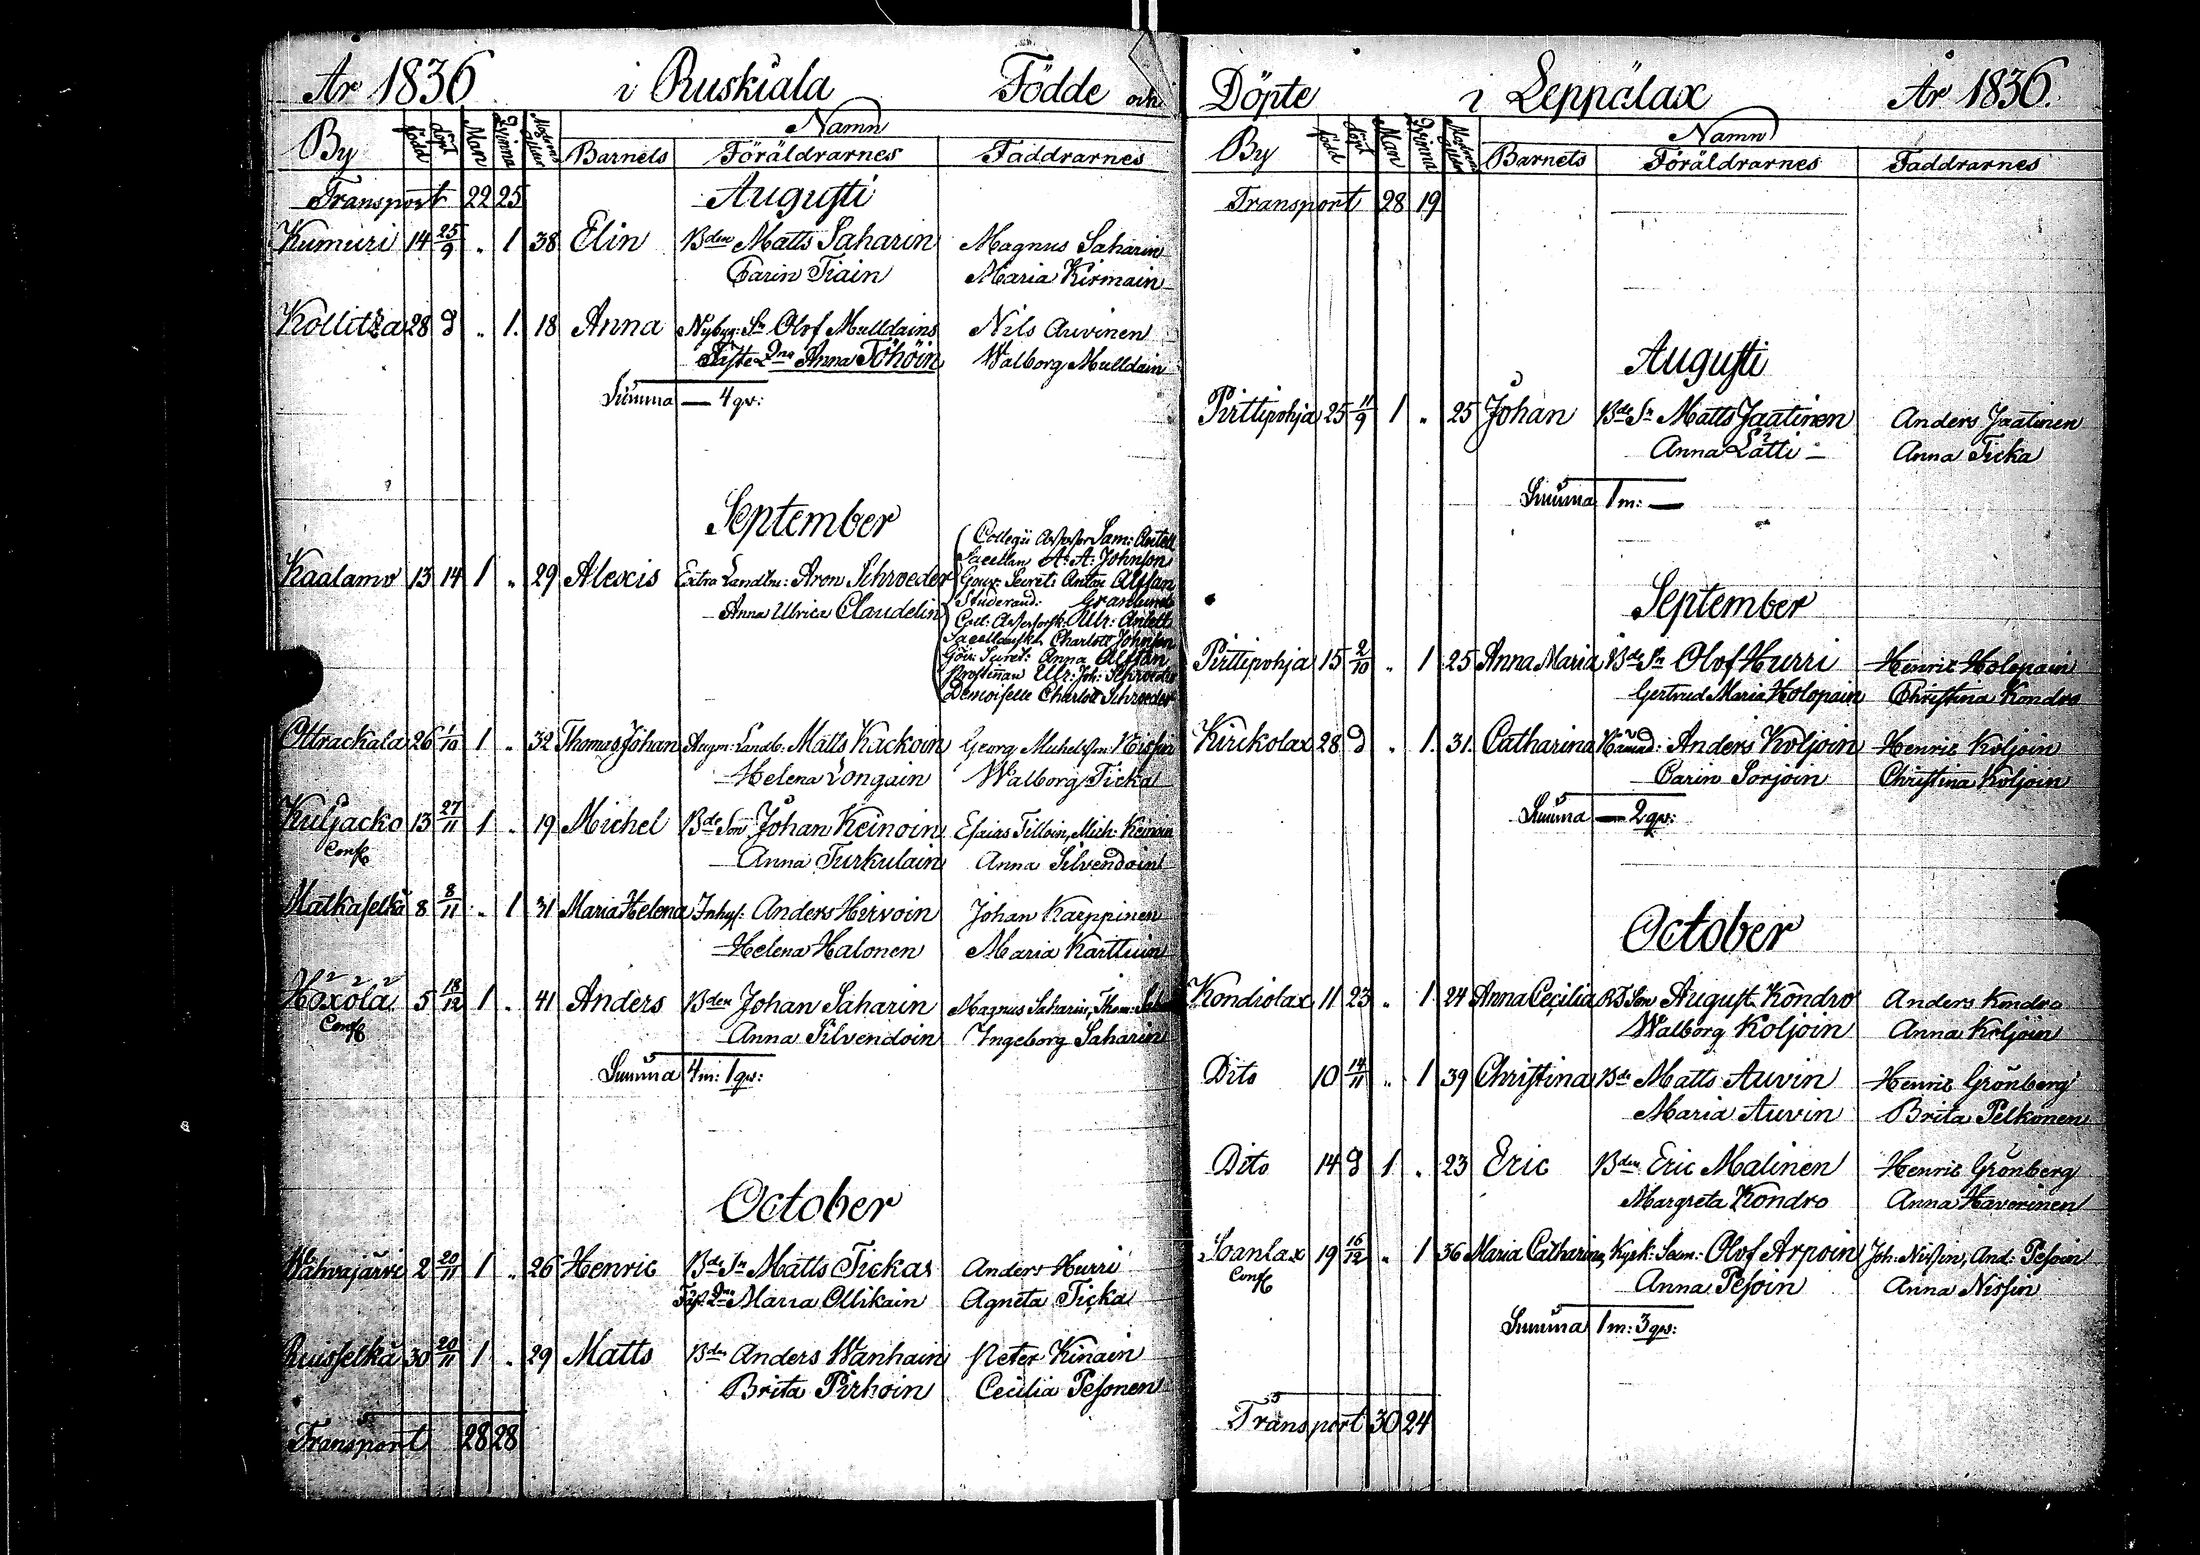 År 1836 i Ruskiala Födde och
By född döpt Man Qvinna Modrens ålder Namn
Barnets Föräldrarnes Faddrarnes
Transport 22 25 Augusti
Kumuri 14 25/9 „ 1 38 Elin Bden Matts Saharin Magnus Saharin
Carin Tiain Maria Kirmain
Kollitza 28 d „ 1. 18 Anna Nybyg: Sn Olof Mulldains Nils Auvinen
Anna Töhöin Walborg Mulldain
Summa — 4 qv:
September
Collegii Assessor Sam: Antell
Sacellan A: A: Johnsson
Kaalamo 13 14 1 „ 29 Alexis Extra Landtm: Aron Schroeder Gouv: Secret: Anton Alfsan
Studerand: Granlund
Anna Ulrica Claudelin Coll: Assessorsk: Ulr: Antell
Charlott Johnsson
Gouv: Secret: Anna Alfsan
Prostinnan Ulr: Joh: Schroeder
Demoiselle Charlott Schroeder
Ottrackala 26 1/10 1 „ 32 Thomas Johan Augm: Landb: Matts Kackoin Georg Michelsson
Helena Longain Walborg Ticka
Kuljacko 13 27/11 1 „ 19 Michel Bde Son Johan Keinoin Esaias Tilloin, Mich: Keinoin
Anna Turkulain Anna Silvendoin
Matkaselkä 8 8/11 „ 1 31 Maria Helena Inhys: Anders Hirvoin Johan Karppinen
Helena Halonen Maria Karttuin
Höxölä 5 18/12 1 „ 41 Anders Bden Johan Saharin Magnus Saharin, Thom:
Anna Silvendoin Ingeborg Saharin
Summa 4 m: 1 qv:
October
Wahvajärvi 2 20/11 1 „ 26 Henric Bde Sn Matts Tickas Anders Hurri
Maria Ollikain Agneta Ticka
Ruisselkä 30 20/11 1 „ 29 Matts Bden Anders Wanhain Peter Kinain
Brita Pirhoin Cecilia Pesonen
Transport 28 28
Döpte i Leppälax År 1836.
By född döpt Man Qvinna Modrens ålder Namn
Barnets Föräldrarnes Faddrarnes
Transport 28 19
Augusti
Pirttipohja 25 11/9 1 „ 25 Johan Bde Sn Matts Jaatinen Anders Jaatinen
Anna Lätti Anna Ticka
Summa 1 m: —
September
Pirttipohja 15 2/10 „ 1 25 Anna Maria Bde Sn Olof Hurri Henric Holopain
Gertrud Maria Holopain Christina Kondro
Kirickolax 28 d „ 1. 31. Catharina Anders Koljoin Henric Koljoin
Carin Sorjoin Christina Koljoin
Summa — 2 qv:
October
Kondiolax 11 23 „ 1 24 Anna Cecilia Son August Kondro Anders Kondro
Walborg Koljoin Anna Koljoin
Dito 10 14/11 „ 1 39 Christina Bde Matts Auvin Henric Grönberg
Maria Auvin Brita Pelkonen
Dito 14 d 1 „ 23 Eric Bden Eric Malinen Henric Grönberg
Margreta Kondro Anna Haverinen
Soanlax 19 16/12 „ 1 36 Maria Catharina Olof Arpoin Joh: Nissin, And: Pesoin
Anna Pesoin Anna Nissin
Summa 1 m: 3 qv:
Transport 30 24